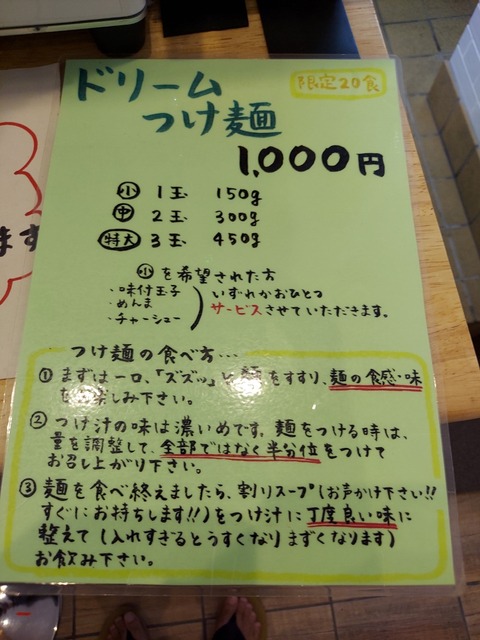 ドリーム
つけ麺
限定20食
1,000円
小 1玉 150g
中 2玉 300g
特大 3玉 450g
小を希望された方
・味付玉子
・めんま
・チャーシュー
いずれかおひとつ
サービスさせていただきます。
つけ麺の食べ方…
① まずは一口、「ズズッ」と麺をすすり、麺の食感・味
楽しみ下さい。
② つけ汁の味は濃いめです。麺をつける時は、
量を調整して、全部ではなく半分位をつけて
お召し上がり下さい。
③ 麺を食べ終えましたら、割りスープ(お声かけ下さい!!
すぐにお持ちします!!)をつけ汁に丁度良い味に
整えて(入れすぎるとうすくなりまずくなります)
お飲み下さい。
ます